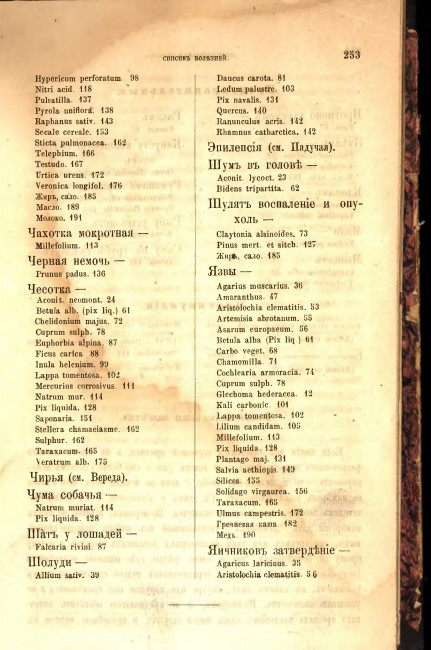 списокъ болѣзней.
253
Hypericum perforatum 98
Nitri acid. 118
Pulsatilla. 137
Pyrola uniflora. 138
Raphanus sativ. 143
Secale cereale. 153
Sticta pulmonacea. 162
Telephium. 166
Testudo. 167
Urtica urens. 172
Veronica longifol. 176
Жиръ, сало. 185
Масло. 189
Молоко. 191
Чахотка мокротная —
Millefolium. 113
Черная немочь —
Prunus padus. 136
Чесотка —
Aconit. neomont. 24
Betula alb. (pix liq.) 61
Chelidonium majus. 72
Cuprum sulph. 78
Euphorbia alpina. 87
Ficus carica 88
Inula helenium. 99
Lappa tomentosa. 102
Mercurius corrosivus. 111
Natrum mur. 114
Pix liquida. 128
Saponaria. 151
Stellera chamaeiasme. 162
Sulphur. 162
Taraxacum. 165
Veratrum alb. 175
Чирья (см. Вереда).
Чума собачья —
Natrum muriat. 114
Pix liquida. 128
Шатъ у лошадей —
Falcaria rivini. 87
Шолуди —
Allium sativ. 39
Daucus carota. 81
Ledum palustre. 103
Pix navalis. 131
Quercus. 140
Ranunculus acris. 142
Rhamnus catharctica. 142
Эпилепсія (см. Падучая).
Шумъ въ головѣ —
Aconit. lycoct. 23
Bidens tripartita. 62
Шулятъ воспаленіе и опу-
холь —
Claytonia alsinoides. 73
Pinus mert. et sitch. 127
Жиръ, сало. 185
Язвы —
Agarius muscarius. 36
Amaranthus. 47
Aristolochia clematitis. 53
Artemisia abrotanum. 55
Asarum europaeum. 56
Betula alba (Pix liq.) 61
Carbo veget. 68
Chamomilla. 71
Cochlearia armoracia. 74
Cuprum sulph. 78
Glechoma hederacea. 12
Kali carbonic. 101
Lappa tomentosa. 102
Lilium candidam. 105
Millefolium. 113
Pix liquida. 128
Plantago maj. 131
Salvia aethiopis. 149
Silicea. 155
Solidago virgaurea. 156
Taraxacum. 165
Ulmus campestris. 172
Гречневая каша 182
Медъ. 190
Яичниковъ затвердѣніе —
Agaricus laricinus. 35
Aristolochia clematitis.